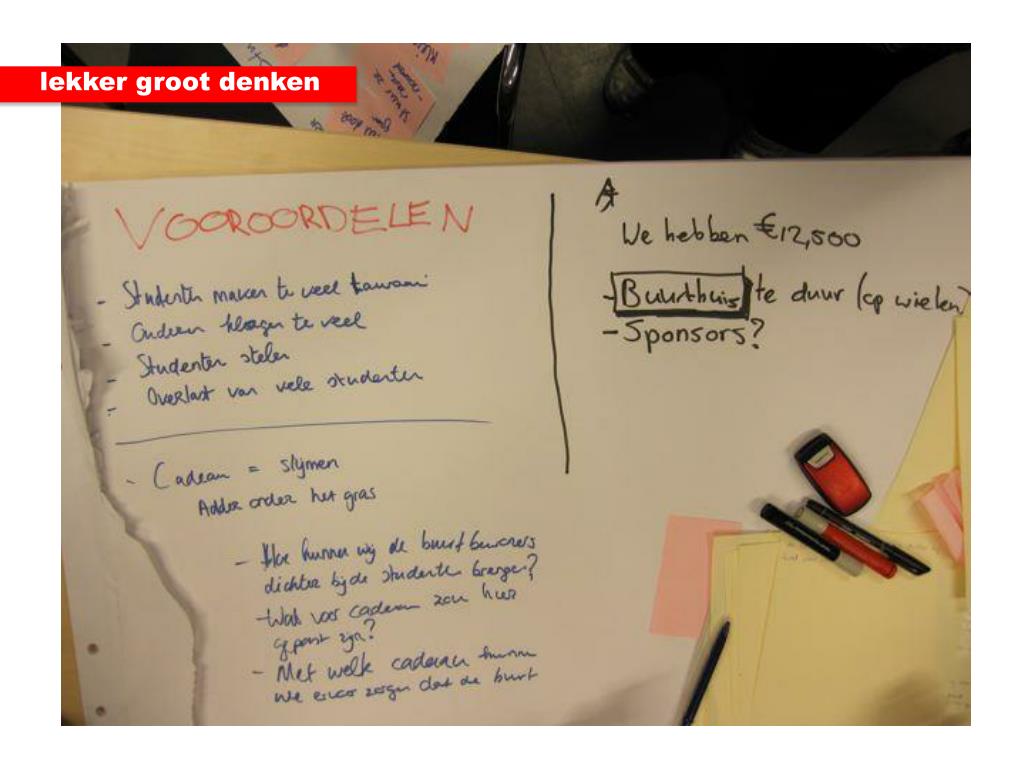 lekker groot denken
VOOROORDELEN
- Studenten maken te veel lawaai
- Ouderen klagen te veel
- Studenten stelen
- Overlast van vele studenten
- Cadeau = slijmen
Adder onder het gras
- Hoe kunnen wij de buurtbewoners
dichter bij de studenten brengen?
- Wat voor cadeau zou hier
gepast zijn?
- Met welk cadeau kunnen
we ervoor zorgen dat de buurt
We hebben €12,500
- Buurthuis te duur (op wielen)
- Sponsors?